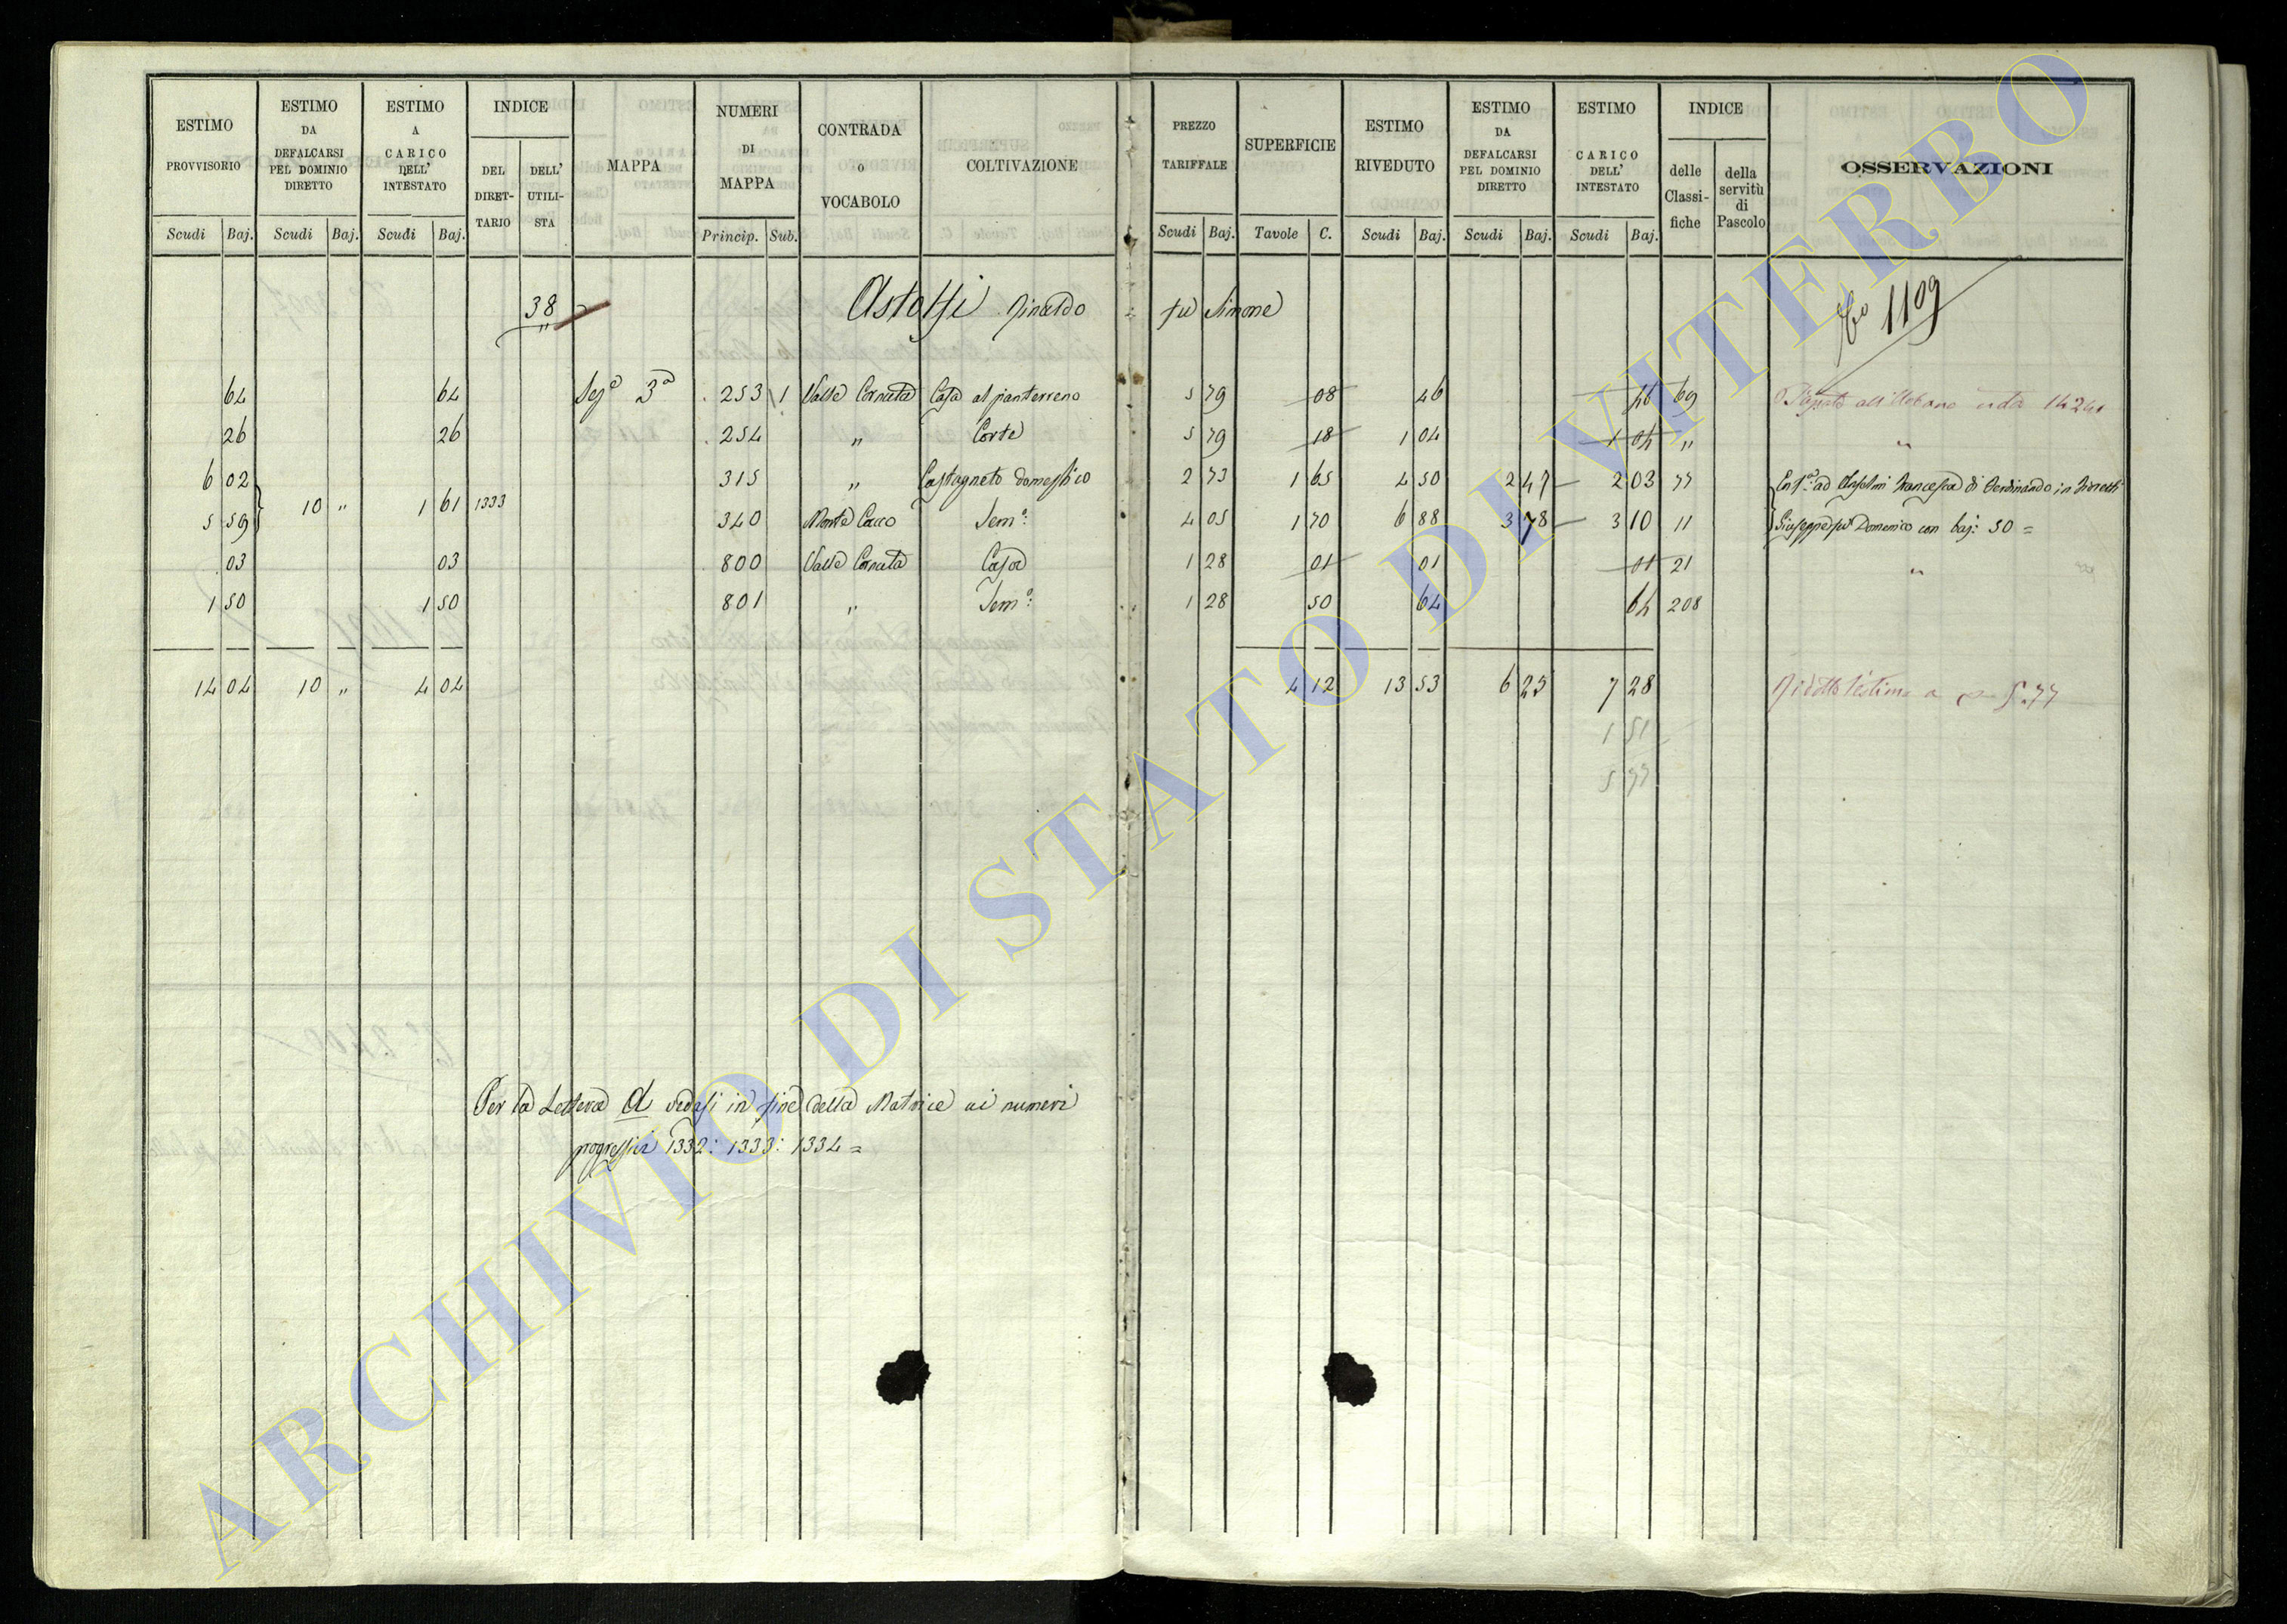 ESTIMO PROVVISORIO | ESTIMO DA DEFALCARSI PEL DOMINIO DIRETTO | ESTIMO A CARICO DELL' INTESTATO | INDICE | MAPPA | NUMERI DI MAPPA | CONTRADA o VOCABOLO | COLTIVAZIONE | PREZZO TARIFFALE | SUPERFICIE | ESTIMO RIVEDUTO | ESTIMO DA DEFALCARSI PEL DOMINIO DIRETTO | ESTIMO A CARICO DELL' INTESTATO | INDICE | OSSERVAZIONI
DEL DIRET-TARIO | DELL' UTILI-STA | delle Classi-fiche | della servitù di Pascolo
Scudi | Baj. | Scudi | Baj. | Scudi | Baj. | Princip. | Sub. | Scudi | Baj. | Tavole | C. | Scudi | Baj. | Scudi | Baj. | Scudi | Baj.
38 | Astolfi Rinaldo fu Simone | 1109
64 | 64 | Sezᵉ 3ᵃ | 253 | 1 | Valle Cornuta | Casa al pianterreno | 5 79 | 08 | 46 | 46 | 69 | all'Urbano
26 | 26 | 254 | " | Corte | 5 79 | 18 | 1 04 | 1 04 | " | "
6 02 | 315 | " | Castagneto domestico | 2 73 | 1 65 | 4 50 | 2 47 | 2 03 | 77 | Enfᵃ ad Anselmi Francesca di Ferdinando in
10 " | 1 61 | 1333
5 59 | 340 | Monte Cucco | Semᵒ: | 4 05 | 1 70 | 6 88 | 3 78 | 3 10 | 11 | Giuseppe fu Domenico con baj: 50 =
03 | 03 | 800 | Valle Cornuta | Casa | 1 28 | 01 | 01 | 01 | 21 | "
1 50 | 1 50 | 801 | " | Semᵒ: | 1 28 | 50 | 64 | 64 | 208
14 04 | 10 " | 4 04 | 4 12 | 13 53 | 6 25 | 7 28 | Ridotto l'estimo a 5.77
1 51
5 77
Per la Lettera A vedasi in fine della Matrice ai numeri
progressivi 1332: 1333: 1334 =
ARCHIVIO DI STATO DI VITERBO